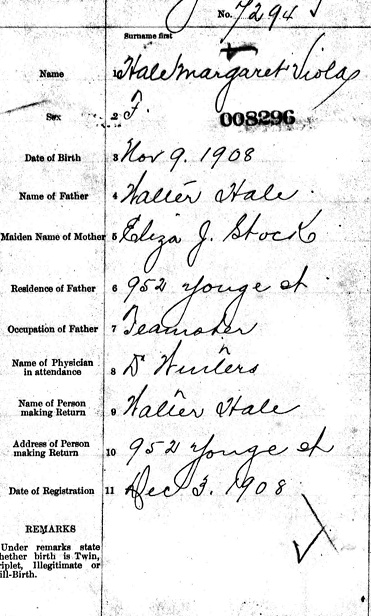 No. 7294
Surname first
Name 1 Hale Margaret Viola
Sex 2 F.
008296
Date of Birth 3 Nov 9. 1908
Name of Father 4 Walter Hale
Maiden Name of Mother 5 Eliza J. Stock
Residence of Father 6 952 Yonge st
Occupation of Father 7 Teamster
Name of Physician
in attendance 8 Dr Winters
Name of Person
making Return 9 Walter Hale
Address of Person
making Return 10 952 Yonge st
Date of Registration 11 Dec 3. 1908
REMARKS
Under remarks state
whether birth is Twin,
Triplet, Illegitimate or
ill-Birth.